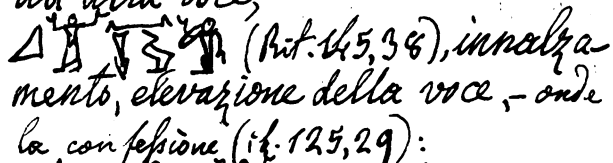 voce,
(Rit. 145,38), innalza-
mento, elevazione della voce, - onde
la confeſsione 125,29):